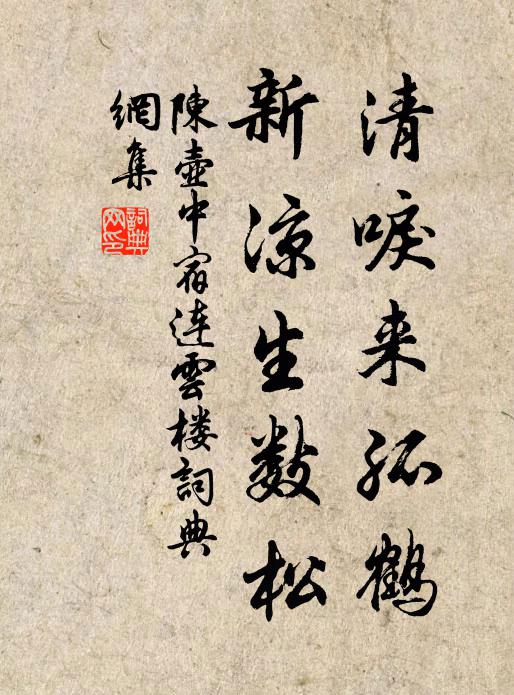 清唳来孤鹤
新凉生数松
陳壺中宿連雲楼詞典
網集
詞典
网印